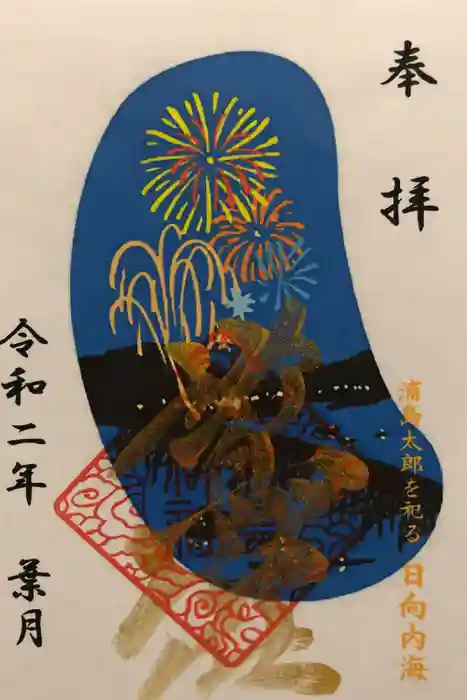 奉拝
浦島太郎を祀る 日向内海
令和二年 葉月